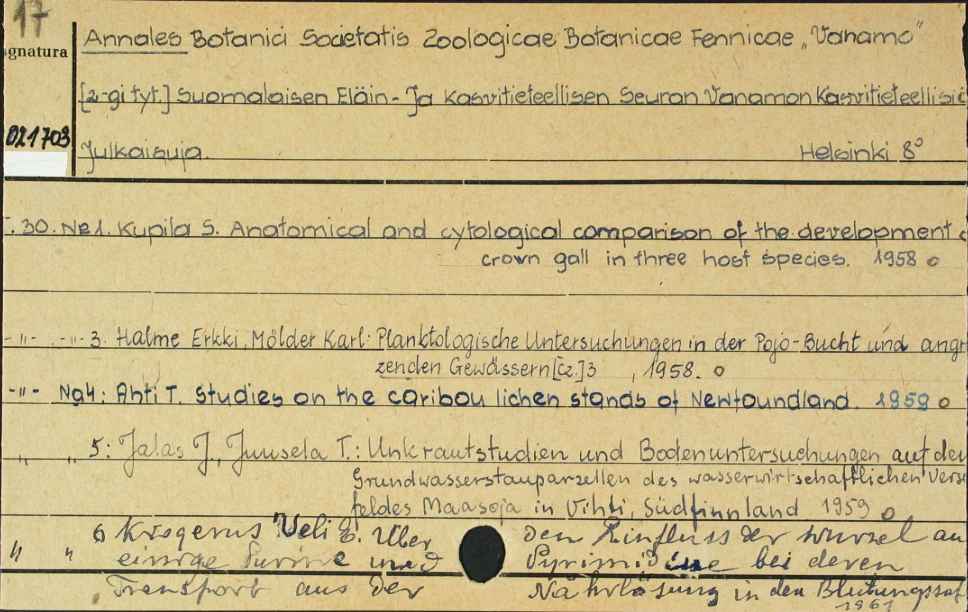 17
ignatura
Annales Botanici Societatis Zoologicae Botanicae Fennicae „Vanamo"
[2-gi tyt.] Suomalaisen Eläin- Ja Kasvitieteellisen Seuran Vanamon Kasvitieteellisiä
021703
Julkaisuja. Helsinki 8°
T. 30. № 1. Kupila S. Anatomical and cytological comparison of the development
crown gall in three host species. 1958 o
-"- -"- 3. Halme Erkki, Mölder Karl: Planktologische Untersuchungen in der Pojo-Bucht und angr
zenden Gewässern [cz.] 3 , 1958. o
-"- № 4: Ahti T. Studies on the caribou lichen stands of Newfoundland. 1959 o
" " 5: Jalas J., Juusela T.: Unkrautstudien und Bodenuntersuchungen auf den
Grundwasserstauparzellen des wasserwirtschaftlichen Vers
feldes Maasoja in Vihti, Südfinnland 1959 o
" " 6 Krogerus Veli E. Über den Einfluss der Wurzel au
einige Purine und Pyrimidine bei deren
Transport aus der Nährlösung in den Blutungssaf
1961